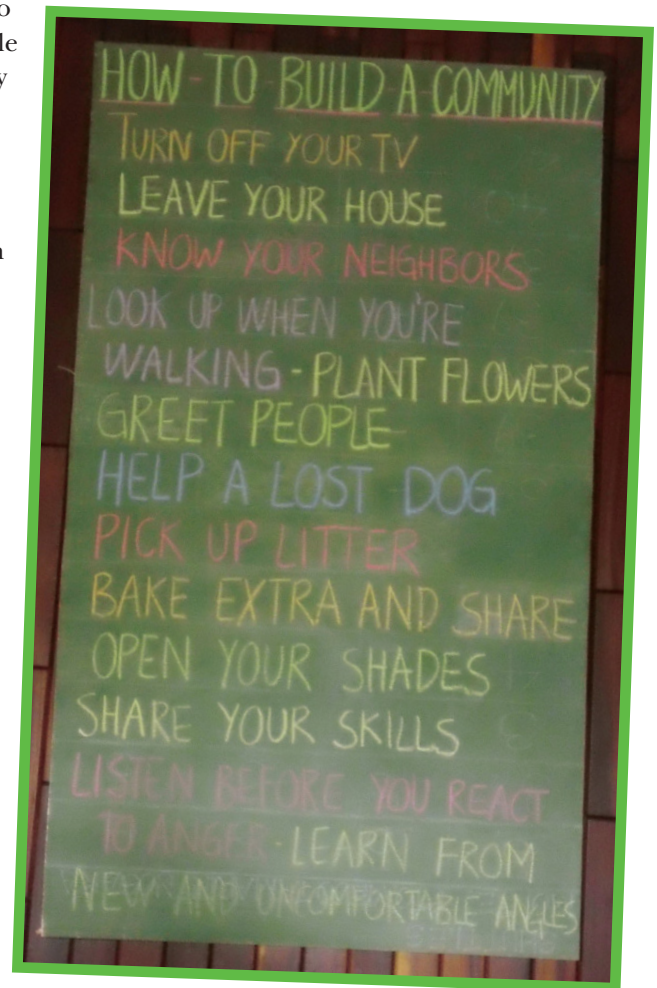 HOW TO BUILD A COMMUNITY
TURN OFF YOUR TV
LEAVE YOUR HOUSE
KNOW YOUR NEIGHBORS
LOOK UP WHEN YOU'RE
WALKING - PLANT FLOWERS
GREET PEOPLE
HELP A LOST DOG
PICK UP LITTER
BAKE EXTRA AND SHARE
OPEN YOUR SHADES
SHARE YOUR SKILLS
LISTEN BEFORE YOU REACT
TO ANGER - LEARN FROM
NEW AND UNCOMFORTABLE ANGLES